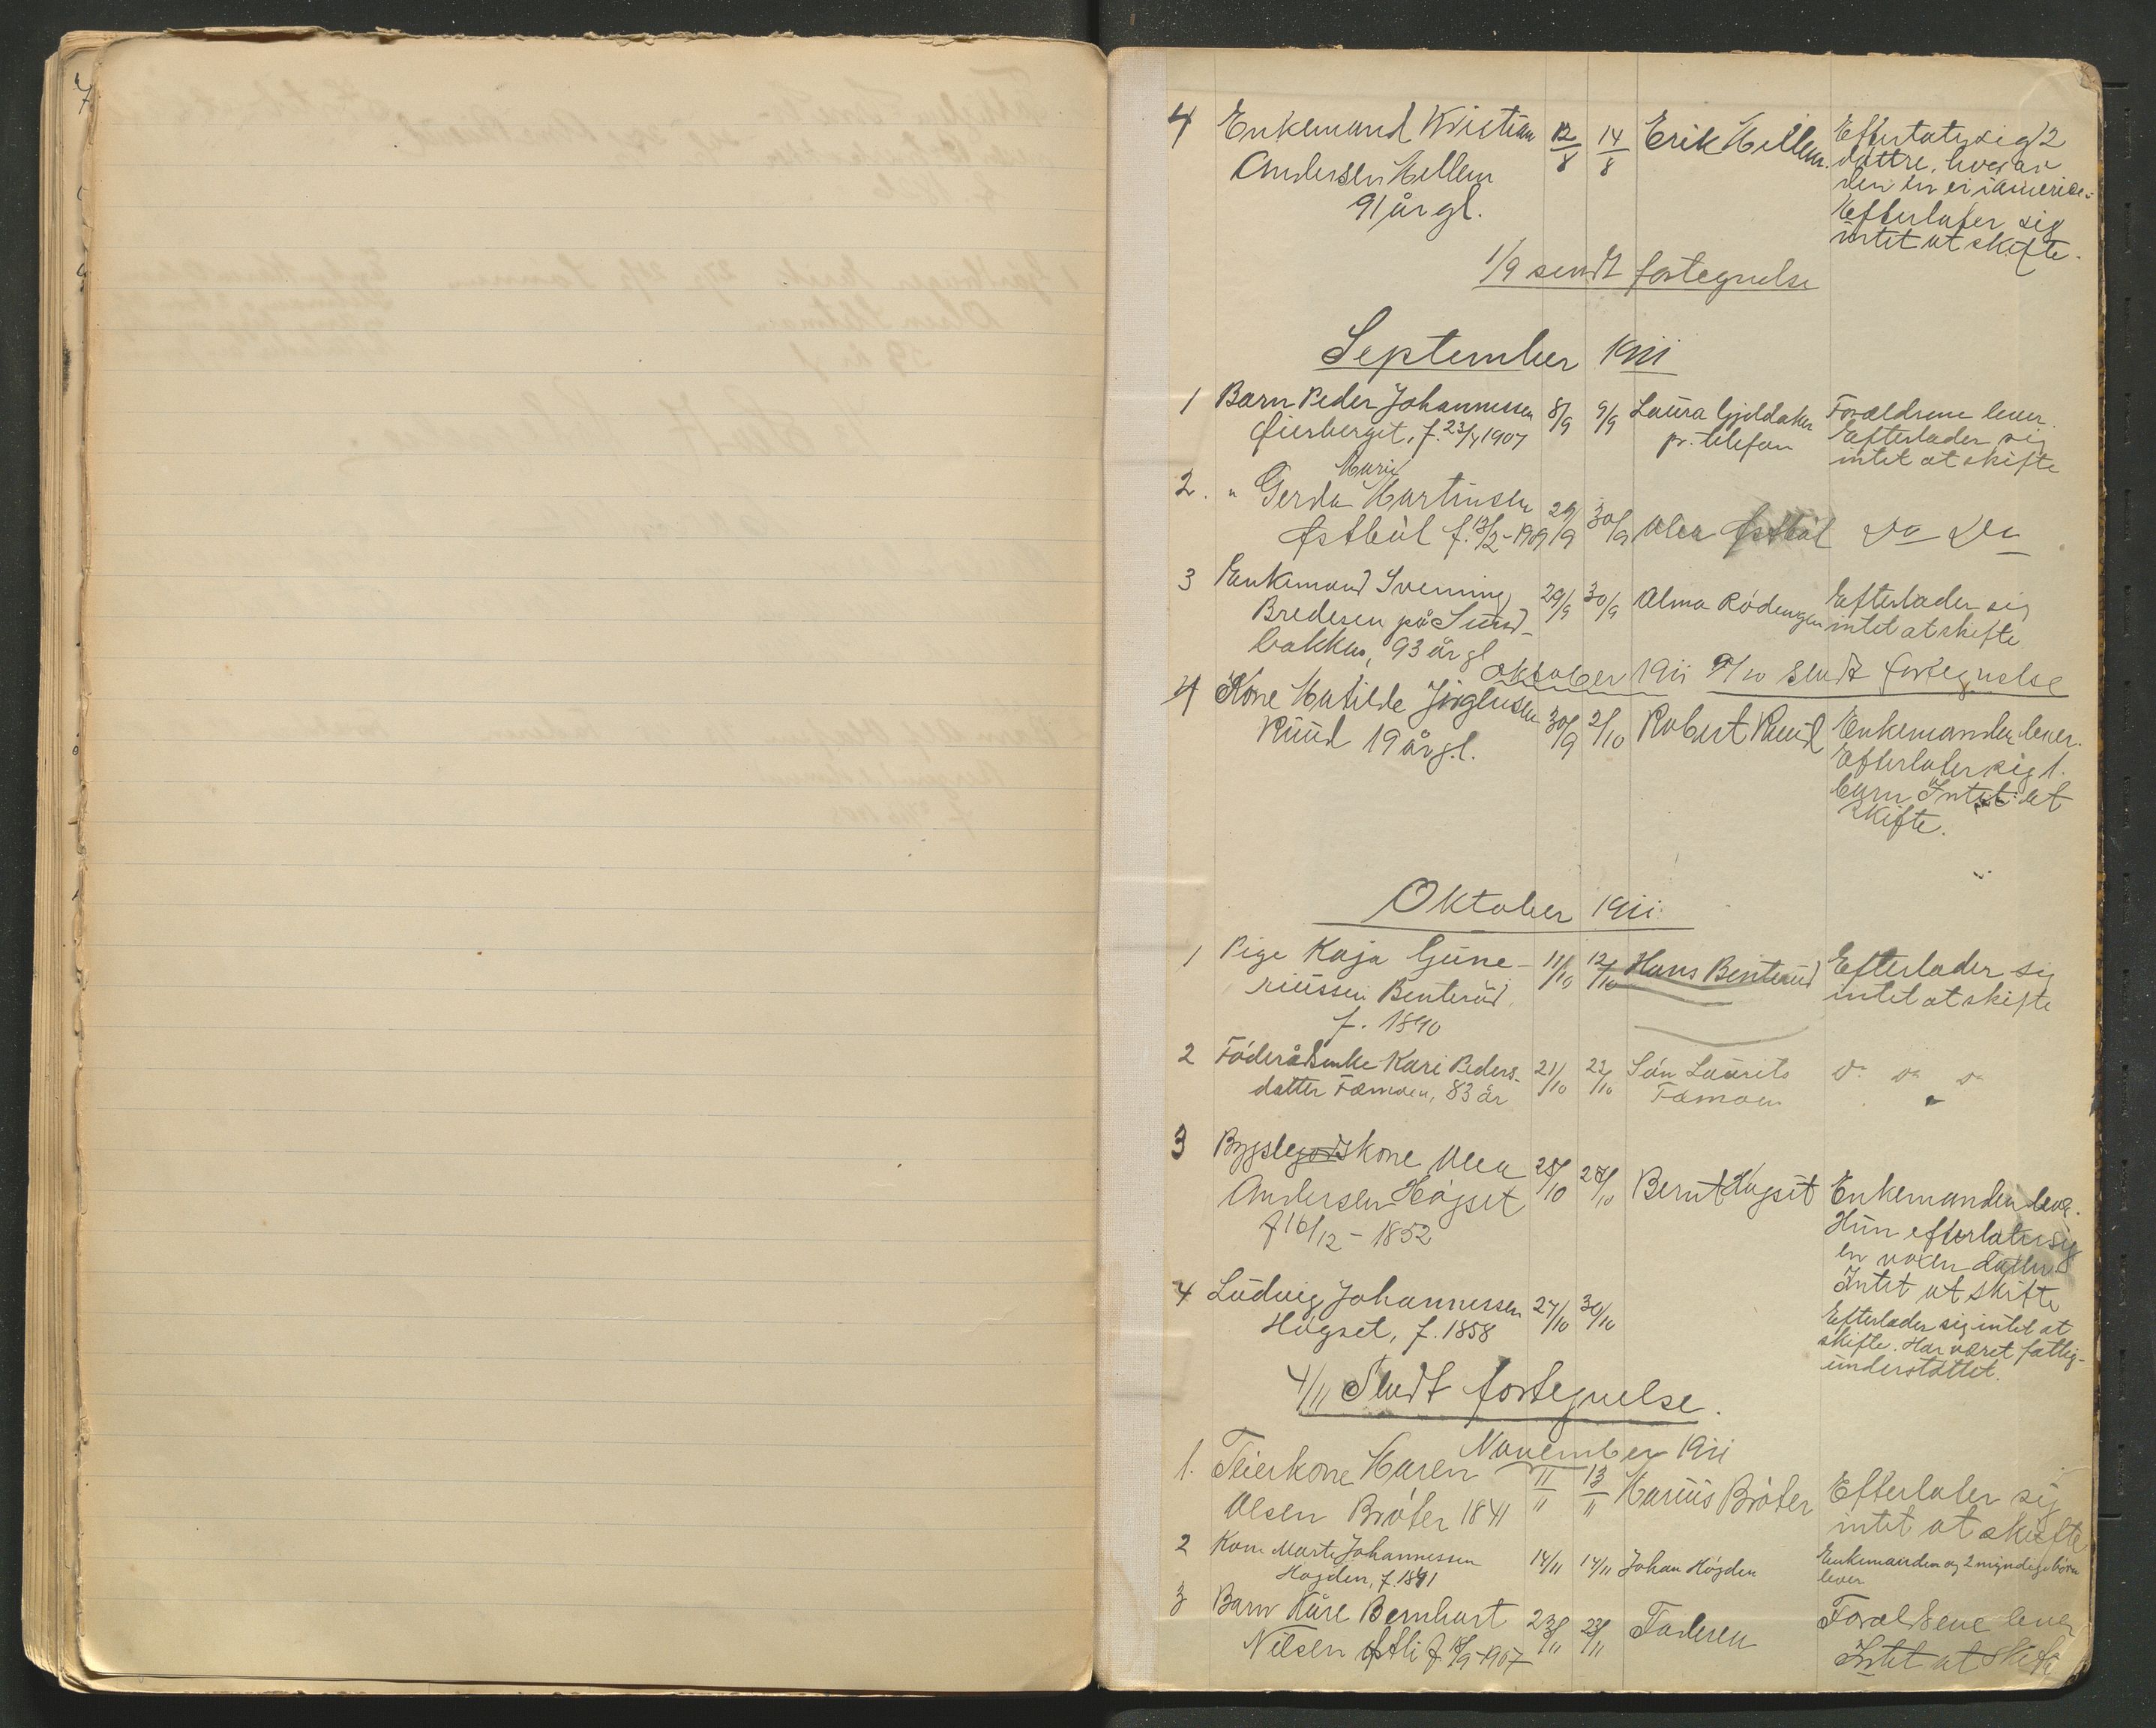 4 Enkemand Kristian 12/8 14/8 Erik Hellem. Efterlater sig 2
Andersen Hellem døttre, hvorav
91 år gl. den en er i Amerika.
Efterlater sig
intet at skifte.
1/9 sendt fortegnelse
September 1911
1 Barn Peder Johannessen 8/9 9/9 Laura Gjeldaker Forældrene lever.
f. 23/4 1907 pr. telefon Efterlader sig
intet at skifte
Marie
2. " Gerda Martinsen 29/9 30/9 Olea Østbøl Do Do
Østbøl f. 13/2-1909
3 Enkemand Svenning 29/9 30/9 Alma Rødengen Efterlader sig
Bredesen på Sund- intet at skifte
bakken, 93 år gl
Oktober 1911 2/10 sendt fortegnelse
4 Kone Matilde Jørgensen 30/9 2/10 Robert Ruud Enkemanden lever.
Ruud 19 år gl. Efterlater sig 1
barn. Intet at
skifte.
Oktober 1911
1 Pige Kaja Gune- 11/10 12/10 Hans Benterud Efterlader sig
riussen Benterud. intet at skifte
f. 1890
2 Føderådsenke Kari Peders- 21/10 22/10 Søn Laurits do do do
datter Fæmoen, 83 år Fæmoen
3 Bygslegodskone Olea 25/10 27/10 Bernt Høgset Enkemanden lever.
Andersen Høgset Hun efterlater sig
f 16/12 - 1852 en voxen datter
Intet at skifte
4 Ludvig Johannessen 27/10 30/10 Efterlader sig intet at
Høgset, f. 1858 skifte. Har været fattig-
understøttet.
4/11 Sendt fortegnelse.
November 1911
1. Kone Maren 11/11 13/11 Marius Bråten Efterlater sig
Olsen Bråten 1841 intet at skifte
2 Kone Marte Johannessen 14/11 14/11 Johan Høgden Enkemanden og 2 myndige børn
Høgden, f. 1841 lever
3 Barn Kåre Bernhart 23/11 23/11 Faderen Forældrene lever
Nilsen Østli f. 18/9-1907 Intet at skifte